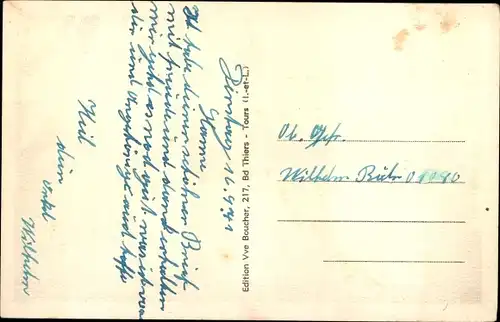 Dinstag 16.9.41
Hanni
Ich habe deinen schönen Brief
mit freude und dank erhalten
mir geht es noch gut was ich von
dir und auch hoffe
Heil
dein
Onkel
Wilhelm
Edition Vve Boucher, 217, Bd Thiers - Tours (I.-et-L.)
Ob. Gefr.
Wilhelm 08080